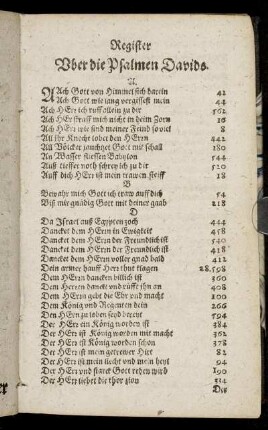 Register
Vber die Psalmen Davids.
A.
Ach Gott von Himmel sieh darein 42
Ach Gott wie lang vergissest mein 44
Ach Herr ich ruff allein zu dir 562
Ach Herr straff mich nicht in deim zorn 16
Ach Herr wie sind meiner Feind soviel 8
All ihr Knecht lobet den HErrn 442
All Völcker jauchtzet Gott mit schall 180
An Wasser flüssen Babylon 544
Auß tieffer noth schrey ich zu dir 520
Auff dich HErr ist mein trawen steiff 18
B
Bewahr mich Gott ich traw auff dich 54
Biß mir gnädig Gott mit deiner gnad 218
D
Da Israel auß Egypten zoch 444
Dancket dem HErrn in Ewigkeit 458
Dancket dem HErrn der Freundlich ist 540
Dancket dem HErrn der Freundlich ist 418
Dancket dem HErrn voller gnad
Dein armer hauff Herr thut klagen 28. 598
Dem HErrn dancken billich ist 360
Dem Herren danckt und rüfft ihn an 408
Dem HErrn gebt die Ehr und macht 100
Dem König und Regenten dein 266
Den HErrn zu loben seyd bereit 594
Der HErr ein König worden ist 384
Der HErr ist König worden mit macht 362
Der HErr ist König worden schon 378
Der HErr ist mein getrewer Hirt 82
Der HErr ist mein liecht und mein heyl 94
Der HErr und starck Gott reden wird 190
Der HErr liebet die thor Zion
Der